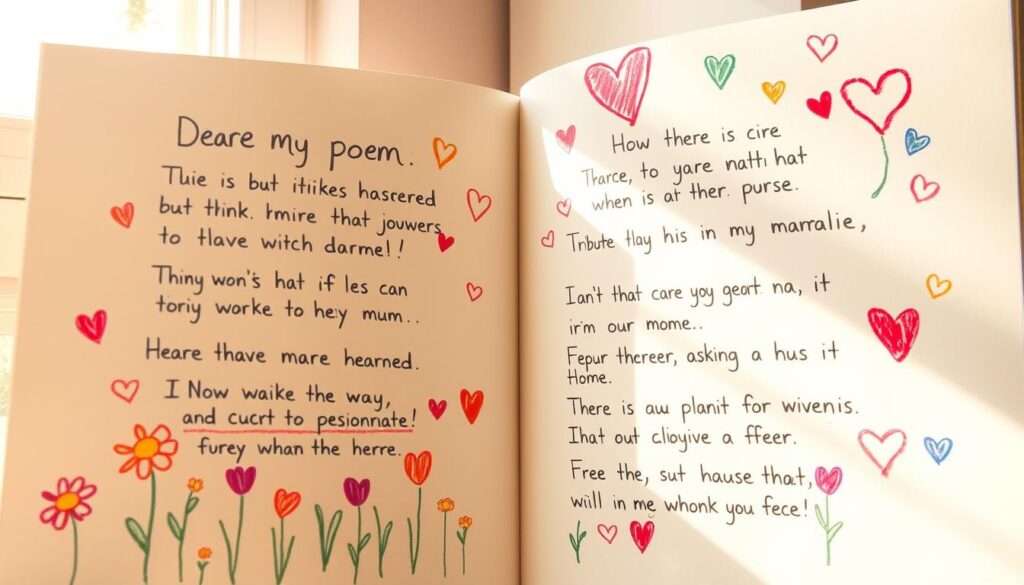 Deare my poem.
Thie is but itiikes hascered
but think. Imire that jouwers,
to tlave witch darme!!
Thiny won's hat if les can
toriy worke to hey mum..
Heare thave mare hearned.
I Now waike the way,
and cucrt to pesionnate!
furey whan the herre.
How there is cire
Tharce, to yare natti hat
when is at ther. purse.
Tribute tlay his in my marralie,
Ian't that care yoy geort. na, it
irm our mome..
Fepur thereer, asking a hus it
Home.
There is au planit for wivenis.
Ihat out clioyive a ffeer.
Free the, sut hause that,
will in me whonk you fece!